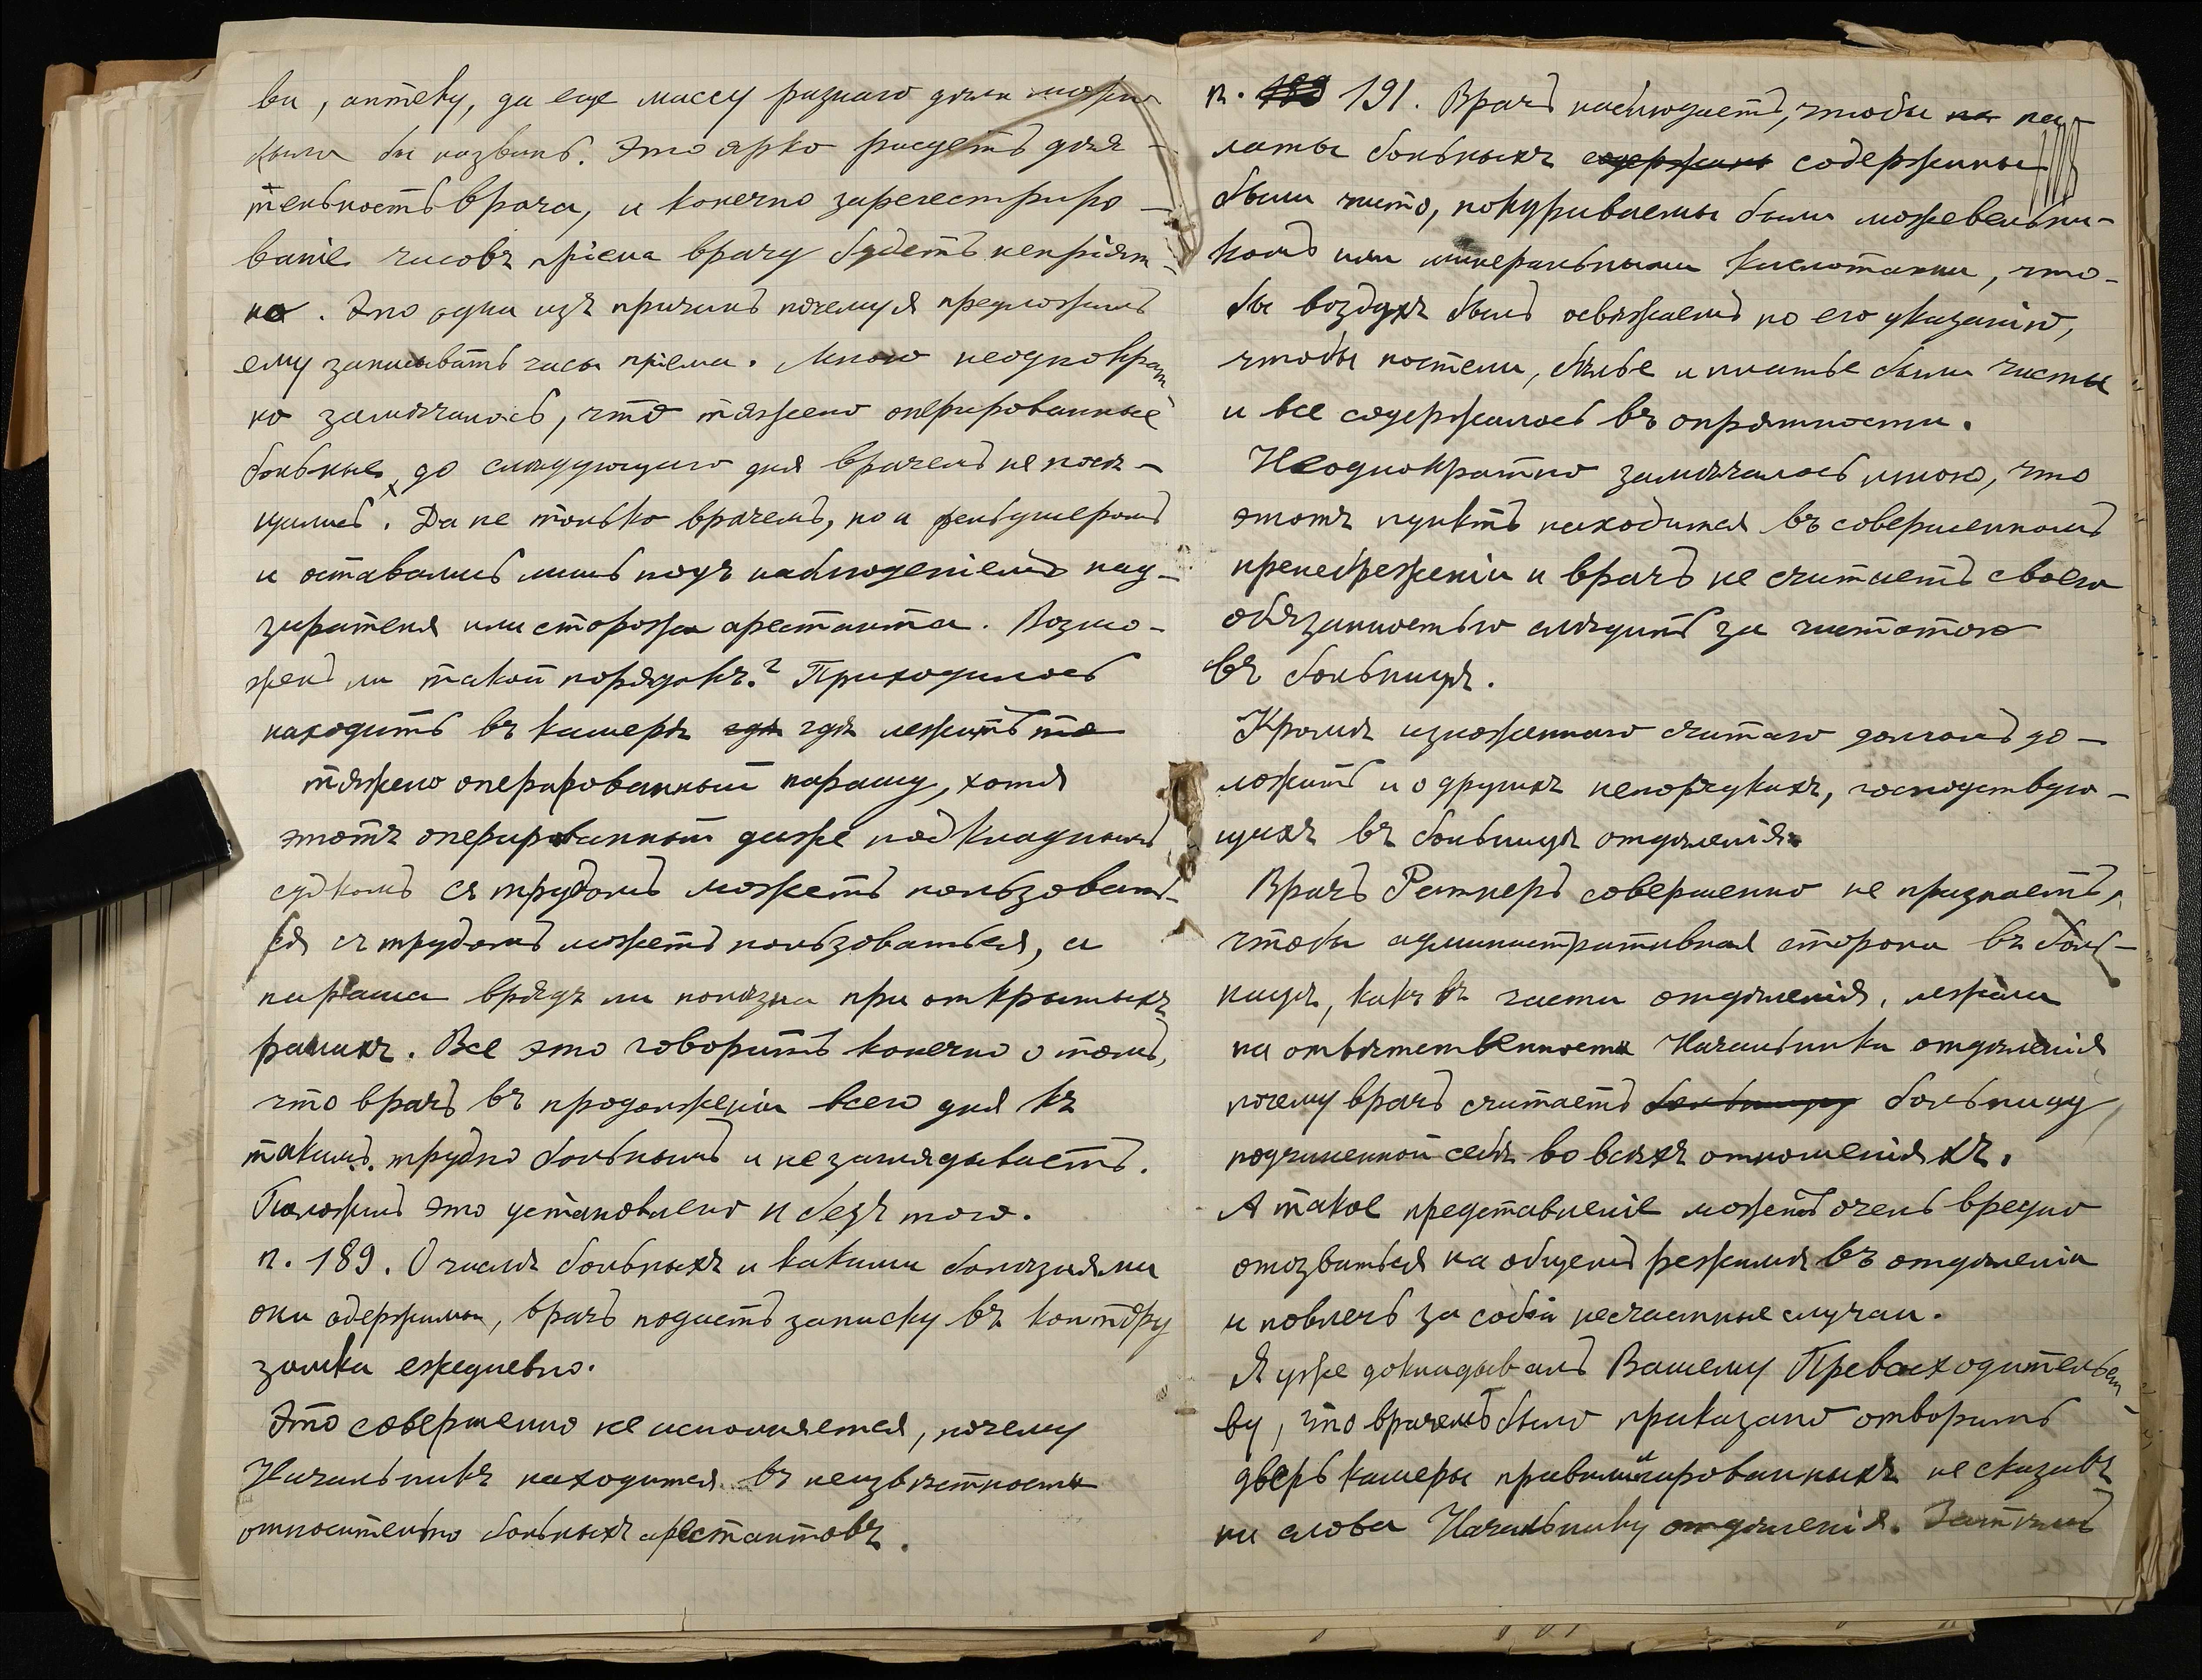 ви, аптеку, да еще массу разнаго дѣла можно
было бы назвать. Это ярко рисуетъ дѣя-
тельность врача, и конечно зарегестриро-
ваніе часовъ пріема врачу будетъ непріят-
но. Это одна изъ причинъ почему я предложилъ
ему записывать часы пріема. Мною неоднократ
но замѣчалось, что тяжело оперированные
больные до слѣдующаго дня врачемъ не посѣ-
щались. Да не только врачемъ, но и фельдшеромъ
и оставались лишь подъ наблюденіемъ над-
зирателя или сторожа арестанта. Возмо-
женъ ли такой порядокъ? Приходилось
находить въ камерѣ гдѣ гдѣ лежитъ то
тяжело оперированный парашу, хотя
этотъ оперированный даже подкладнымъ
судномъ съ трудомъ можетъ пользовать-
ся съ трудомъ можетъ пользоваться, а
параша врядъ ли полезна при открытыхъ
ранахъ. Все это говоритъ конечно о томъ,
что врачъ въ продолженіи всего дня къ
такимъ трудно больнымъ и не заглядываетъ.
Положимъ это установлено и безъ того.
п. 189. О числѣ больныхъ и какими болѣзнями
они одержимы, врачъ подаетъ записку въ контору
замка ежедневно.
Это совершенно не исполняется, почему
Начальникъ находится въ неизвѣстности
относительно больныхъ арестантовъ.
п. 189 191. Врачъ наблюдаетъ, чтобы на па-
латы больныхъ содержаны содержимы
были чисто, покуриваемы были можевельни-
комъ или минеральными кислотами, что-
бы воздухъ былъ освѣжаемъ по его указанію,
чтобы постели, бѣлье и платье были чисты
и все содержалось въ опрятности.
Неоднократно замѣчалось мною, что
этотъ пунктъ находится въ совершенномъ
пренебреженіи и врачъ не считаетъ своею
обязанностью слѣдить за чистотою
въ больницѣ.
Кромѣ изложеннаго считаю долгомъ до-
ложить и о другихъ непорядкахъ, господствую-
щихъ въ больницѣ отдѣленія.
Врачъ Ратнеръ совершенно не признаетъ,
чтобы административная сторона въ боль-
ницѣ, какъ въ части отдѣленія, лежала
на отвѣтственности Начальника отдѣленія
почему врачъ считаетъ больницу больницу
подчиненной себѣ во всѣхъ отношеніяхъ.
А такое представленіе можетъ очень вредно
отозваться на общемъ режимѣ въ отдѣленіи
и повлечь за собой несчастные случаи.
Я уже докладывалъ Вашему Превосходительст
ву, что врачемъ было приказано отворить
дверь камеры привилигированныхъ не сказавъ
ни слова Начальнику отдѣленія. Затѣмъ